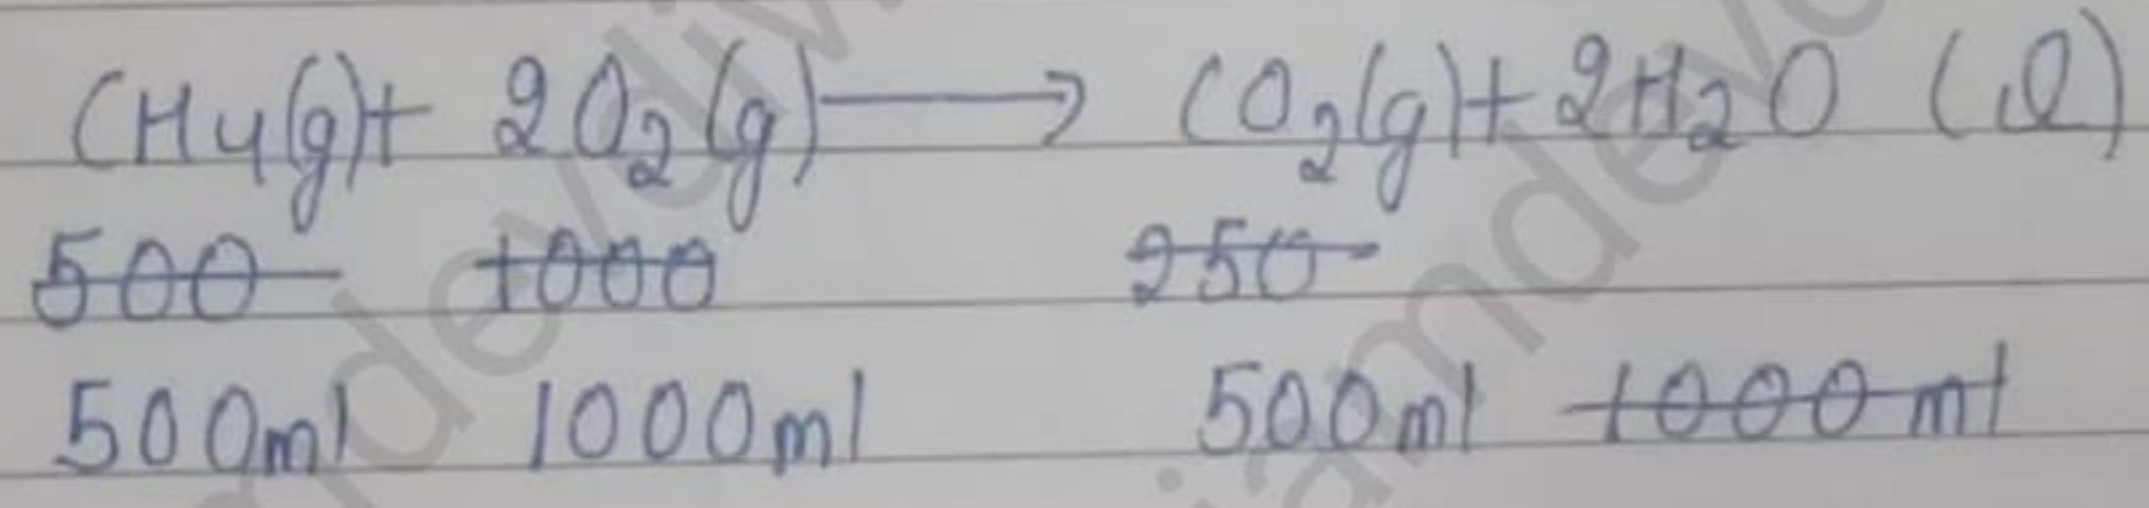 CH4(g)+ 2O2(g) ⟶ CO2(g)+2H2O (l)
500 1000 250
500ml 1000ml 500ml 1000 ml